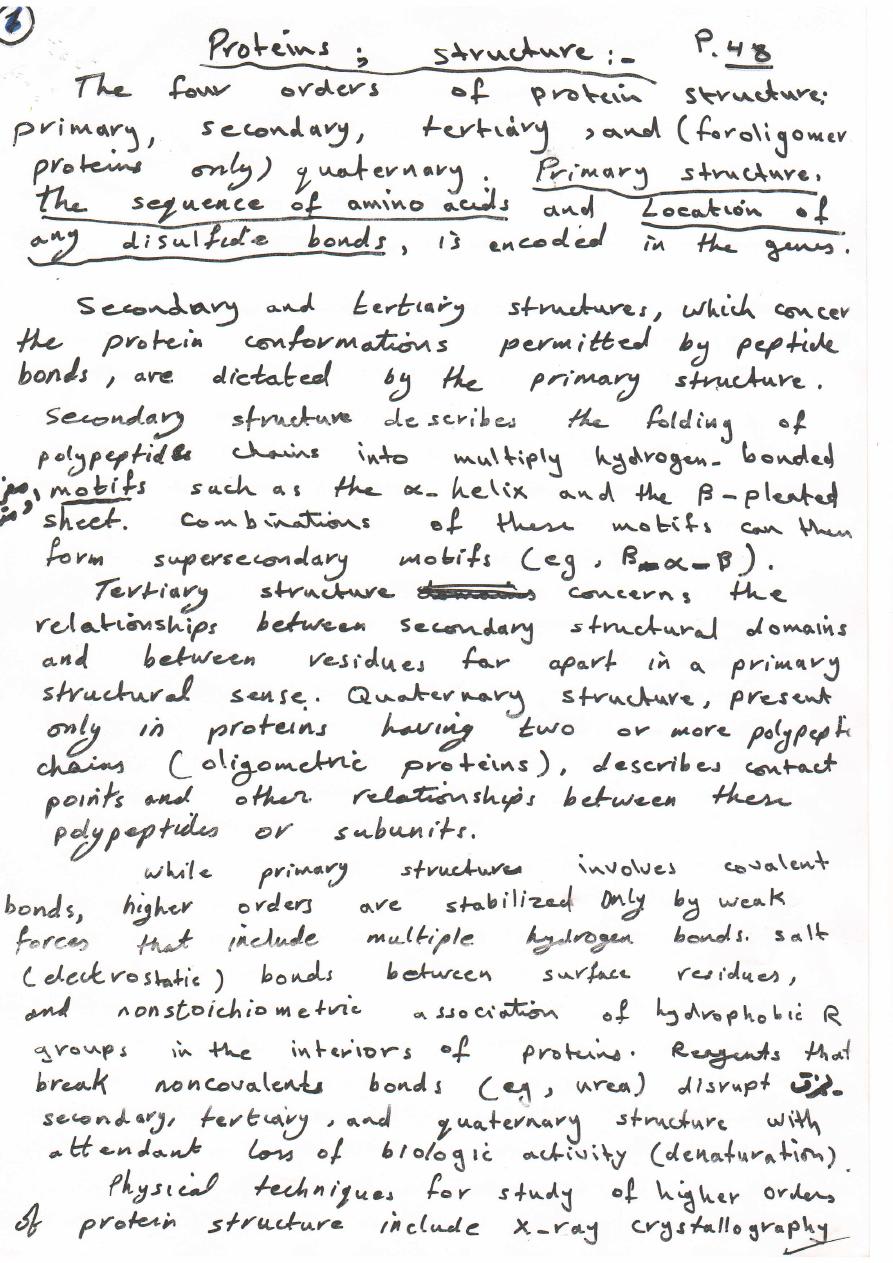 1
Proteins; structure:- P.48
The four orders of protein structure:
primary, secondary, tertiary, and (foroligomer
proteins only) quaternary. Primary structure.
The sequence of amino acids and Location of
any disulfide bonds, is encoded in the genes.
Secondary and tertiary structures, which concer
the protein conformations permitted by peptide
bonds, are dictated by the primary structure.
Secondary structure describes the folding of
polypeptides chains into multiply hydrogen-bonded
motifs such as the α-helix and the β-pleated
sheet. Combinations of these motifs can then
form supersecondary motifs (eg, β-α-β).
Tertiary structure concerns the
relationships between secondary structural domains
and between residues far apart in a primary
structural sense. Quaternary structure, present
only in proteins having two or more polypepti
chains (oligometric proteins), describes contact
points and other relationships between these
polypeptides or subunits.
while primary structure involves covalent
bonds, higher orders are stabilized only by weak
forces that include multiple hydrogen bonds. salt
(electrostatic) bonds between surface residues,
and nonstoichiometric association of hydrophobic R
groups in the interiors of proteins. Reagents that
break noncovalents bonds (eg, urea) disrupt
secondary, tertiary, and quaternary structure with
attendant loss of biologic activity (denaturation).
Physical techniques for study of higher orders
of protein structure include X-ray crystallography